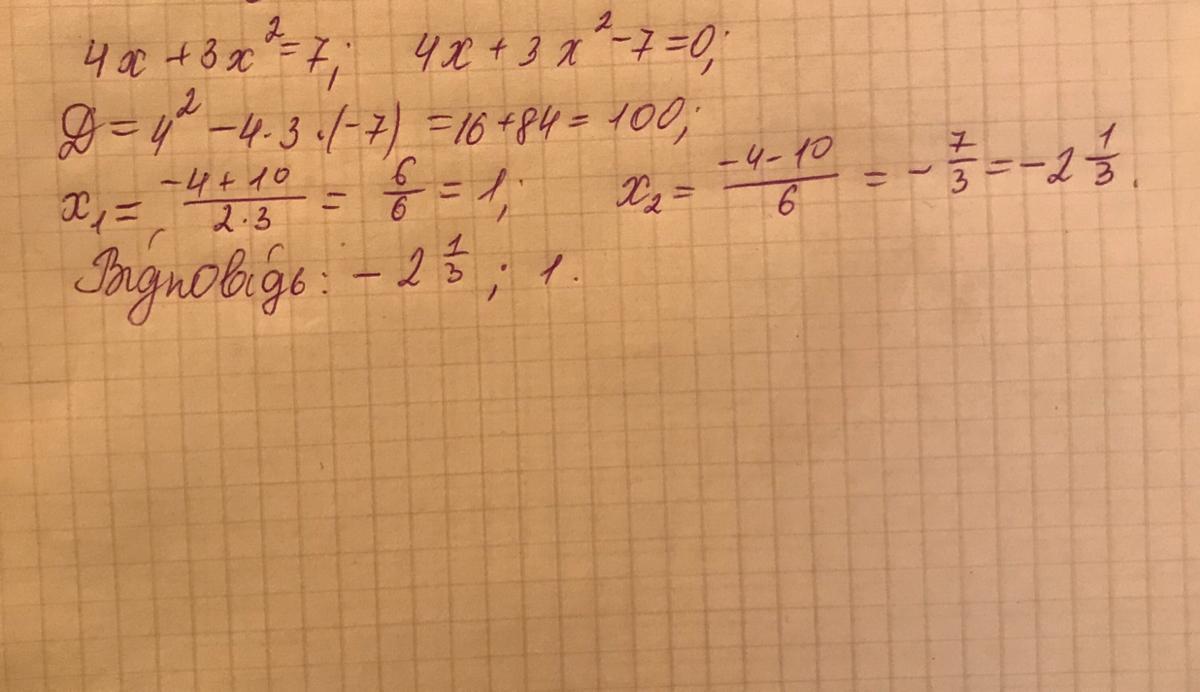 4x + 3x² = 7; 4x + 3x² - 7 = 0;
D = 4² - 4·3·(-7) = 16 + 84 = 100;
x₁ = (-4 + 10)/(2·3) = 6/6 = 1; x₂ = (-4 - 10)/6 = - 7/3 = -2 1/3.
Відповідь: - 2 1/3 ; 1.